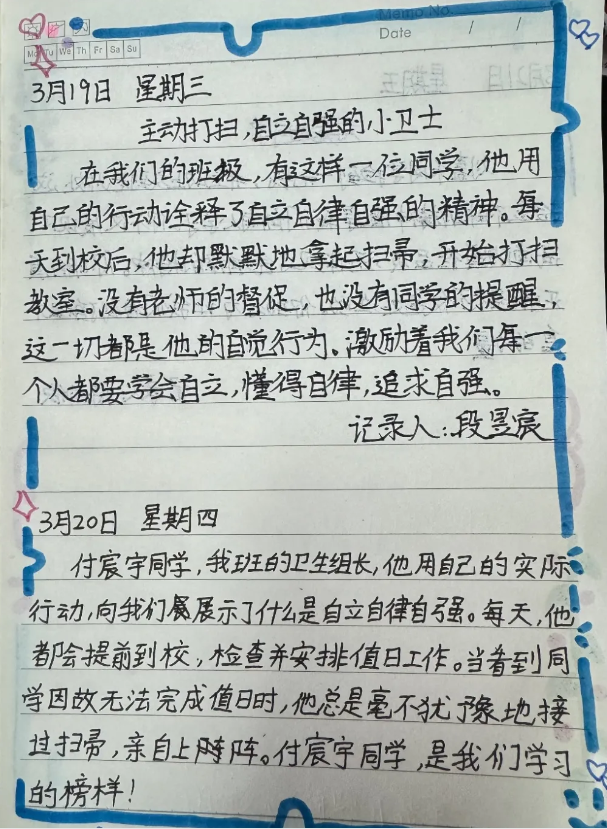 Memo No.
Date / /
Mo Tu We Th Fr Sa Su
3月19日 星期三
主动打扫,自立自强的小卫士
在我们的班级,有这样一位同学,他用
自己的行动诠释了自立自律自强的精神。每
天到校后,他却默默地拿起扫帚,开始打扫
教室。没有老师的督促,也没有同学的提醒,
这一切都是他的自觉行为。激励着我们每一
个人都要学会自立,懂得自律,追求自强。
记录人:段昱宸
3月20日 星期四
付宸宇同学,我班的卫生组长,他用自己的实际
行动,向我们展示了什么是自立自律自强。每天,他
都会提前到校,检查并安排值日工作。当看到同
学因故无法完成值日时,他总是毫不犹豫地接
过扫帚,亲自上阵。付宸宇同学,是我们学习
的榜样!